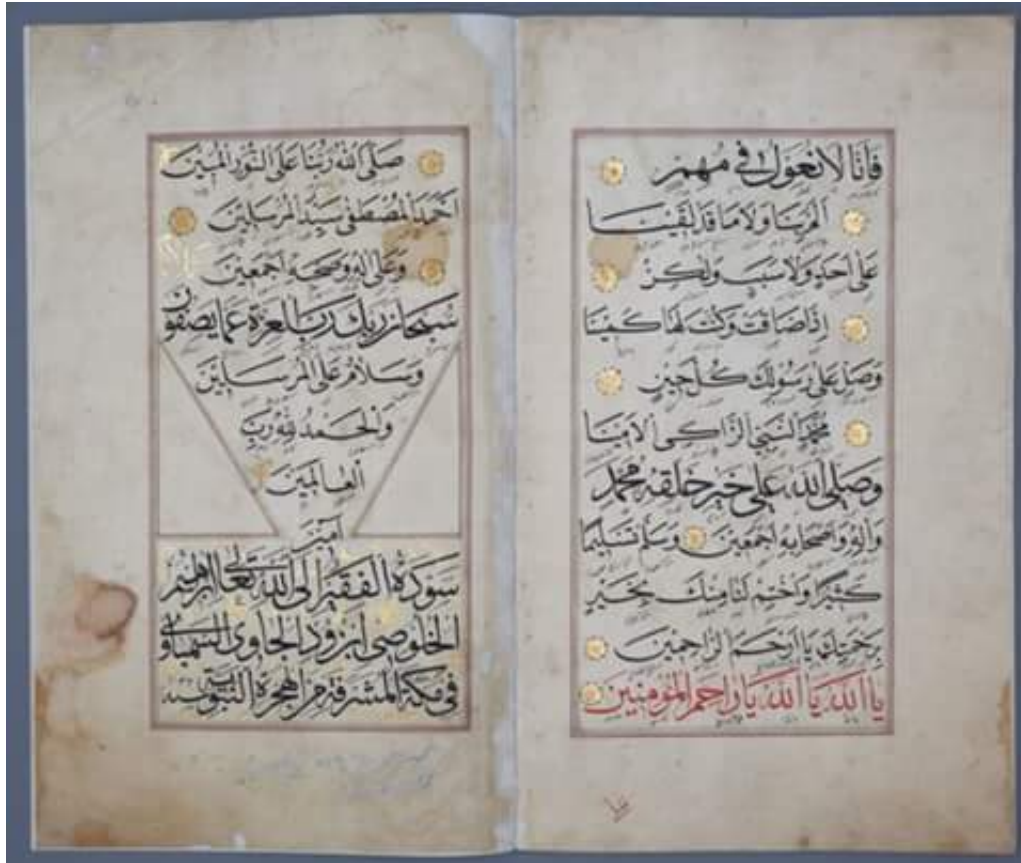 فَإِنَّا لَا نُعَوِّلُ فِي مُهِمٍّ
أَلَمَّ بِنَا وَلَا مَا قَدْ لَقِينَا
عَلَى أَحَدٍ وَلَا سَبَبٍ وَلَكِنْ
إِذَا ضَاقَتْ وَكُنْتَ لَهَا كَمِينَا
وَصَلِّ عَلَى رَسُولِكَ كُلَّ حِينٍ
مُحَمَّدٍ النَّبِيِّ الزَّاكِي الْأَمِينَا
وَصَلَّى اللَّهُ عَلَى خَيْرِ خَلْقِهِ مُحَمَّدٍ
وَآلِهِ وَأَصْحَابِهِ أَجْمَعِينَ وَسَلَّمَ تَسْلِيمًا
كَثِيرًا وَاخْتِمْ لَنَا مِنْكَ بِخَيْرٍ
بِرَحْمَتِكَ يَا أَرْحَمَ الرَّاحِمِينَ
يَا اللَّهُ يَا اللَّهُ يَا رَاحِمَ الْمُؤْمِنِينَ
صَلَّى اللَّهُ رَبُّنَا عَلَى النُّورِ الْمُبِينَ
أَحْمَدَ الْمُصْطَفَى سَيِّدِ الْمُرْسَلِينَ
وَعَلَى آلِهِ وَصَحْبِهِ أَجْمَعِينَ
سُبْحَانَ رَبِّكَ رَبِّ الْعِزَّةِ عَمَّا يَصِفُونَ
وَسَلَامٌ عَلَى الْمُرْسَلِينَ
وَالْحَمْدُ لِلَّهِ رَبِّ
الْعَالَمِينَ
آمِينَ
سوده الفقير إلى الله تعالى إبراهيم
الخلوصي ابن ود الجاوي السمباوي
في مكة المشرفة من الهجرة النبوية سنة